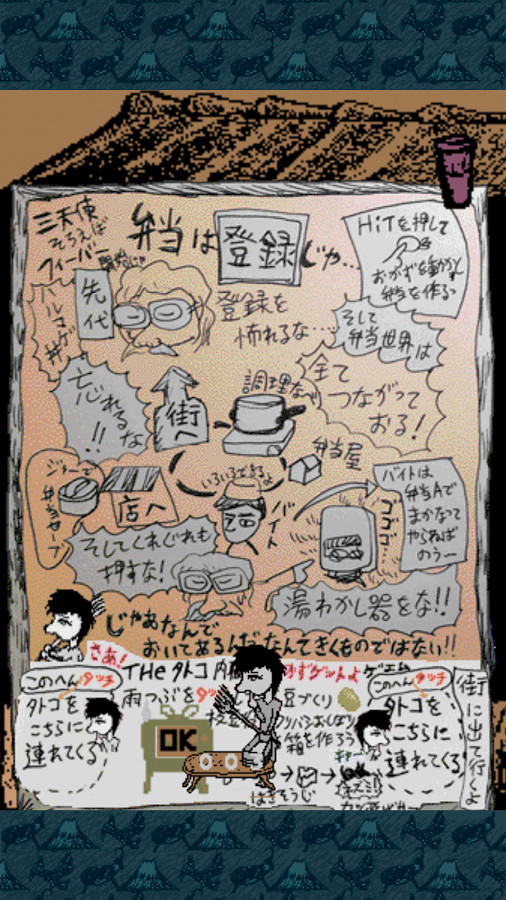 三天使
そうえば
フィーバー
開始じゃ
弁当は登録じゃ…
HiTを押して
おかずを動かし
弁当を作るっ
ハルコゲ丼
先代
登録を
怖れるな…
そして
弁当世界は
全て
つながって
おる!
忘れるな
!!
街へ
調理なべ
弁当屋
いろいろできるよ
バイト
ジャーで
弁当セーブ
店へ
ゴゴゴ…
バイトは
弁当Aで
まかなって
やらねば
のうー
そしてくれぐれも
押すな!
湯わかし器をな!!
じゃあなんで
おいてあるんだなんてきくものではない!!
さあ!
THe タトコ内
かずゲットよ
このへんタッチ
タトコを
こちらに
連れてくる
雨つぶを
OK
豆づくり
箱を作ろう
はきそうじ
このへんタッチ
タトコを
こちらに
連れてくる
街に出て行くよ